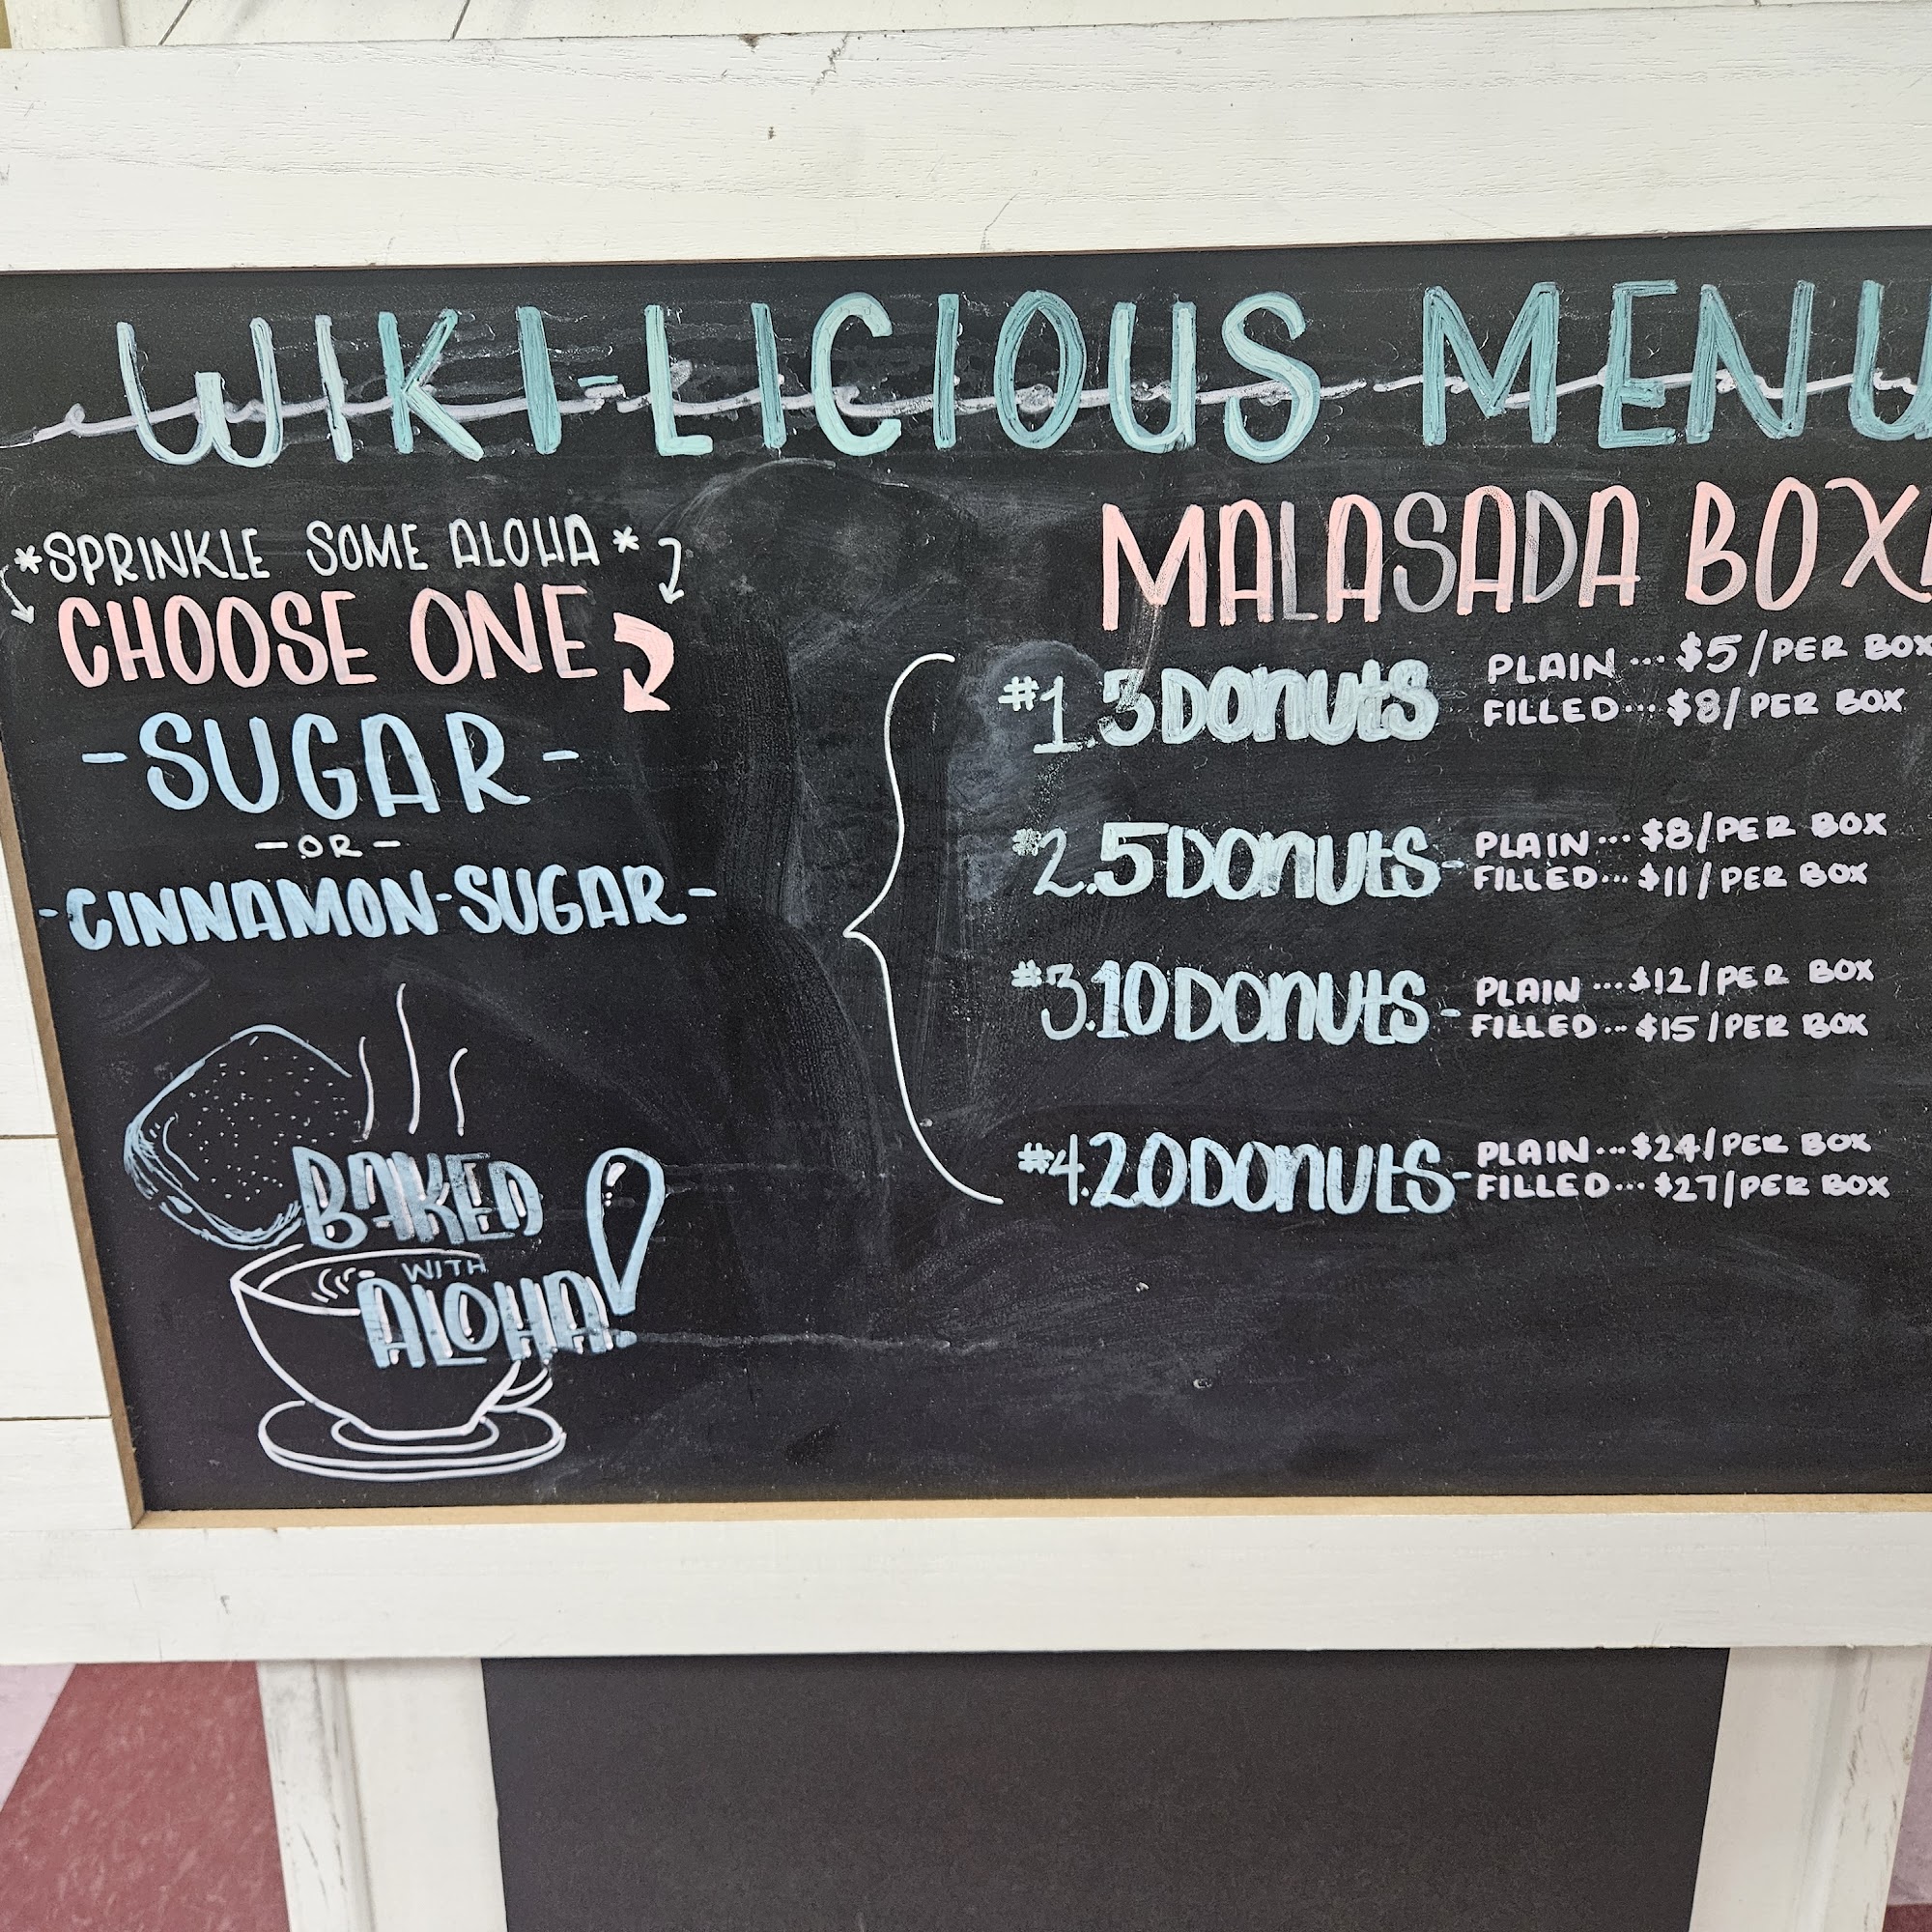 WIKI-LICIOUS MENU
*SPRINKLE SOME ALOHA*
CHOOSE ONE
-SUGAR-
-OR-
-CINNAMON-SUGAR-
BAKED
WITH
ALOHA!
MALASADA BOX
#1. 3 DONUTS
PLAIN... $5/PER BOX
FILLED... $8/PER BOX
#2. 5 DONUTS-
PLAIN... $8/PER BOX
FILLED... $11/PER BOX
#3. 10 DONUTS-
PLAIN... $12/PER BOX
FILLED... $15/PER BOX
#4. 20 DONUTS-
PLAIN... $24/PER BOX
FILLED... $27/PER BOX